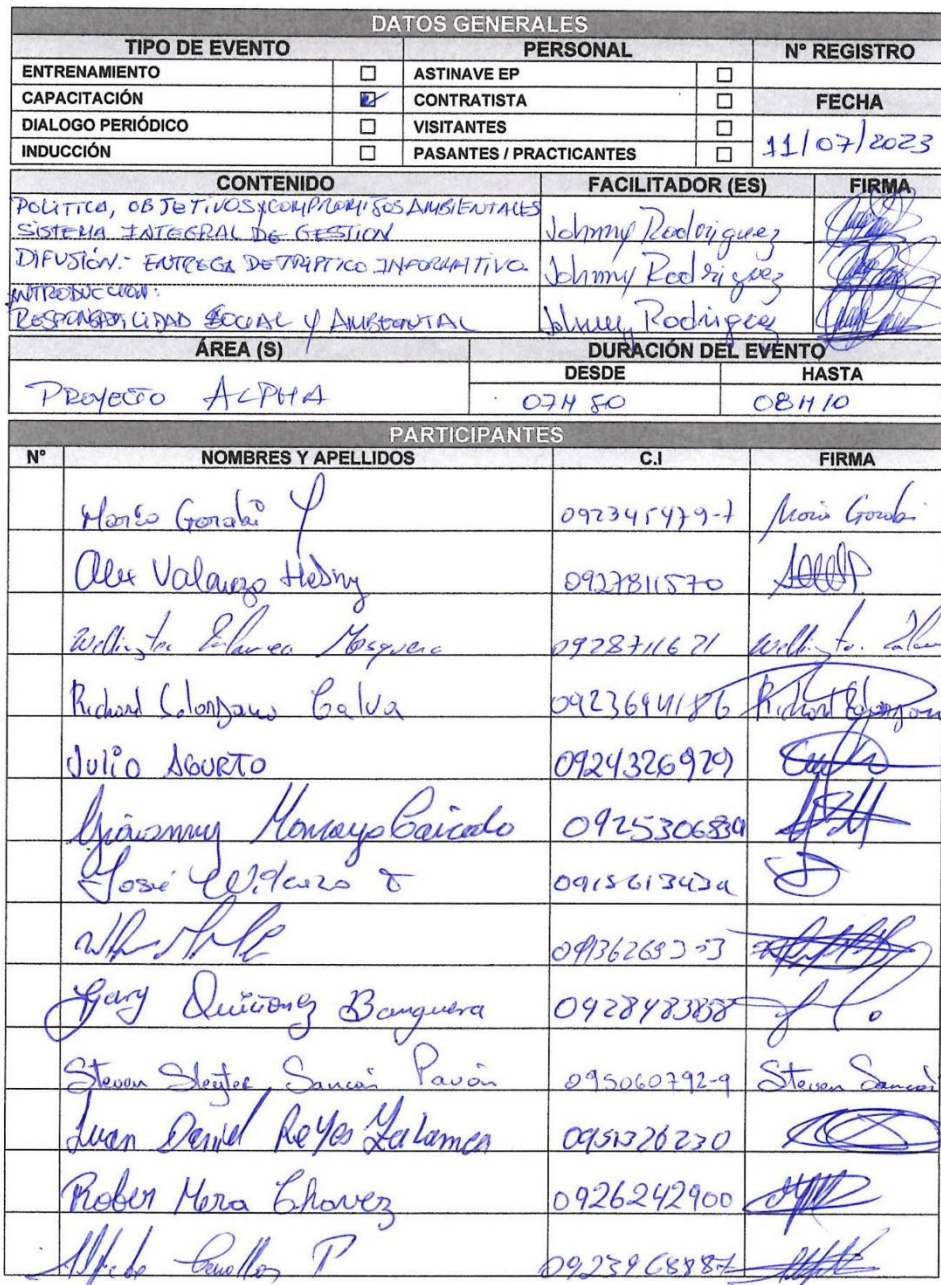 DATOS GENERALES
TIPO DE EVENTO PERSONAL N° REGISTRO
ENTRENAMIENTO ☐ ASTINAVE EP ☐
CAPACITACIÓN ☑ CONTRATISTA ☐ FECHA
DIALOGO PERIÓDICO ☐ VISITANTES ☐ 11/07/2023
INDUCCIÓN ☐ PASANTES / PRACTICANTES ☐
CONTENIDO FACILITADOR (ES) FIRMA
POLITICA, OBJETIVOS Y COMPROMISOS AMBIENTALES
SISTEMA INTEGRAL DE GESTION Johnny Rodriguez
DIFUSIÓN.- ENTREGA DE TRIPTICO INFORMATIVO. Johnny Rodriguez
INTRODUCCION:
RESPONSABILIDAD SOCIAL Y AMBIENTAL Johnny Rodriguez
ÁREA (S) DURACIÓN DEL EVENTO
DESDE HASTA
PROYECTO ALPHA 07H50 08H10
PARTICIPANTES
N° NOMBRES Y APELLIDOS C.I FIRMA
092345479-7
Alex Valarezo 0927811570
Mosquera 0928711621
Richard Solorzano Calva 0923694186 Richard Solorzano
Julio AGURTO 0924326929
Giovanny Monrayo Caicedo
José
Gary Quiñonez Banguera
Steven Sancán Pavón 095060792-9 Steven Sancán
Juan Daniel Reyes Zalamea 0951326230
Rober Mera Chavez 0926242900
0923968887